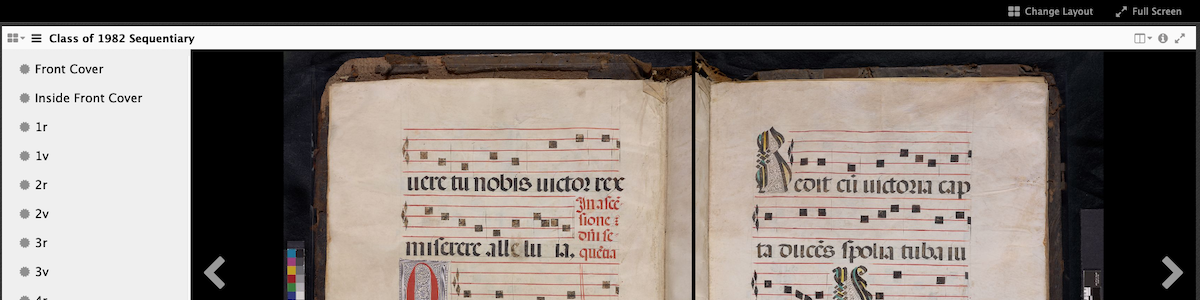 Change Layout
Full Screen
Class of 1982 Sequentiary
Front Cover
Inside Front Cover
1r
1v
2r
2v
3r
3v
4r
uere tu nobis uictor rex
In ascē
sione :
dñi se
miserere .alle lu ia. quētia
Redit cū uictoria cap
ta ducēs spolia tuba iu